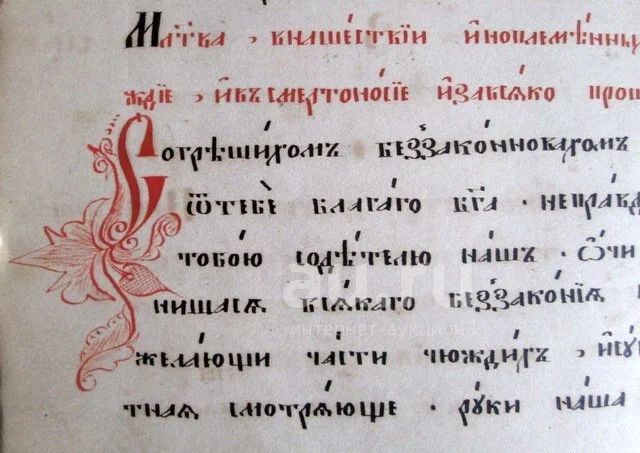 Мл҃тва , внашествїи и҆ноплеме́нны
ждїе , и҆въсмертоно́сїе и҆зався́ко прош
Согрѣши́хомъ беззако́нновахомъ
ѿтебѐ блага́го бг҃а · непра́вд
тобо́ю содѣ́телю на́шъ · ѽчи
нища́сѧ вся́каго беззако́нїѧ
жела́ющи ча́сти чюжди́хъ ,
тнаѧ смотрѧ́юще · рꙋ́ки на́ша
au.ru
интернет-аукцион